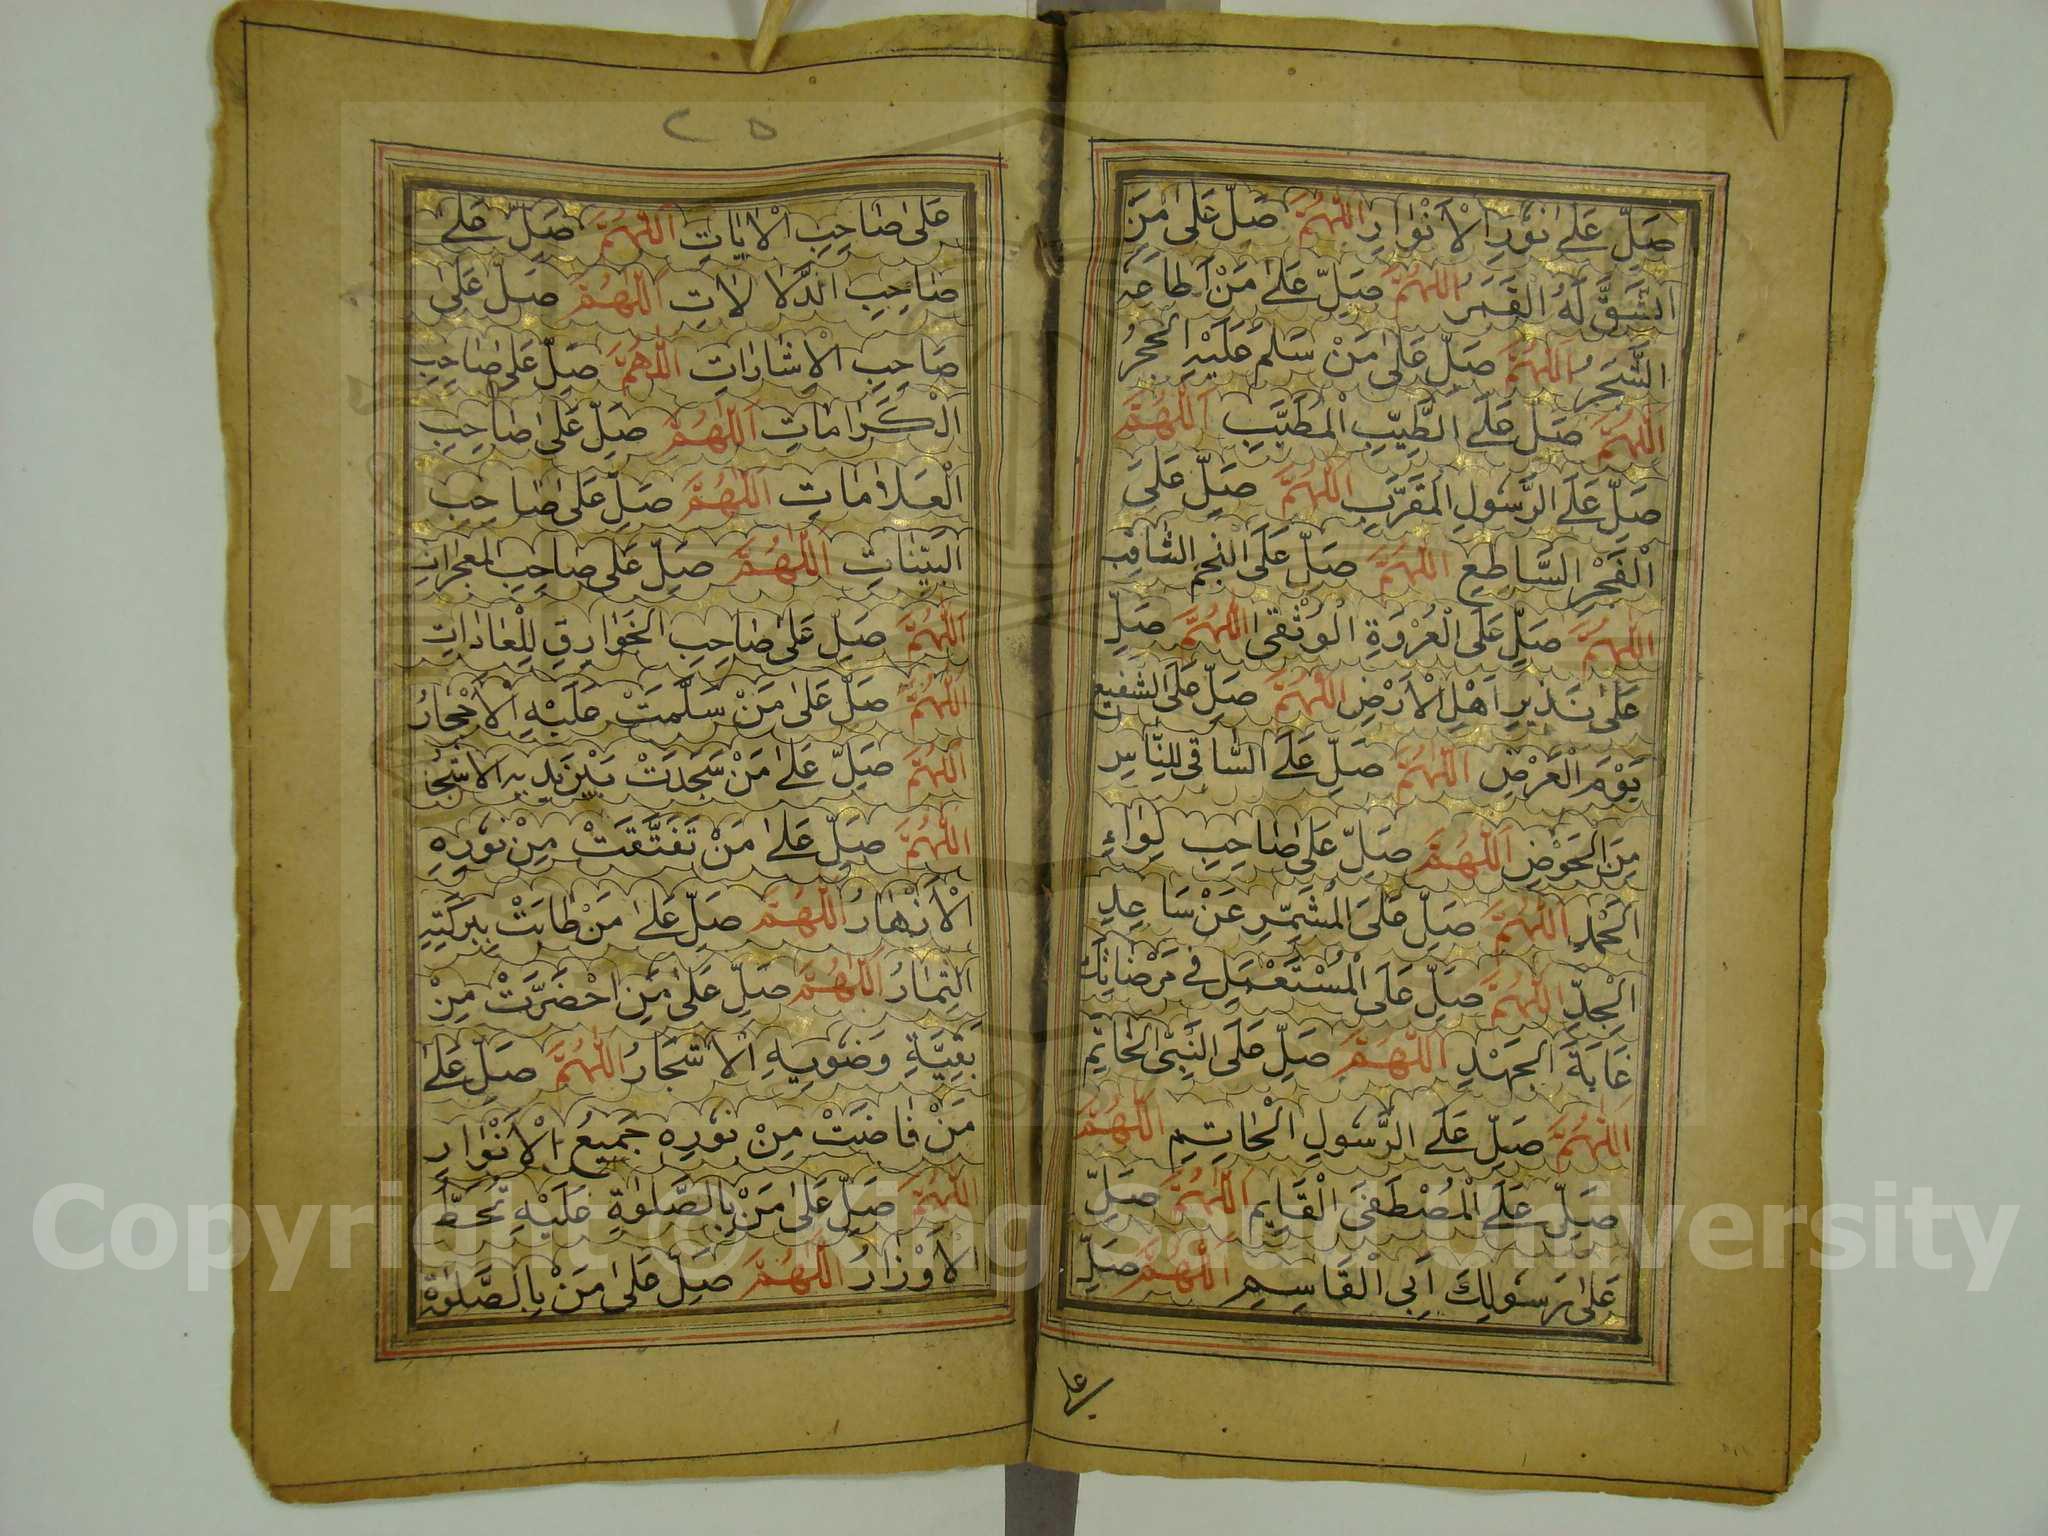 صَلِّ عَلٰى نُوْرِ الْاَنْوَارِ اَللّٰهُمَّ صَلِّ عَلٰى مَنِ
انْشَقَّ لَهُ الْقَمَرُ اَللّٰهُمَّ صَلِّ عَلٰى مَنْ اَطَاعَهُ
الشَّجَرُ اَللّٰهُمَّ صَلِّ عَلٰى مَنْ سَلَّمَ عَلَيْهِ الْحَجَرُ
اَللّٰهُمَّ صَلِّ عَلَى الطَّيِّبِ الْمُطَيَّبِ اَللّٰهُمَّ
صَلِّ عَلَى الرَّسُوْلِ الْمُقَرَّبِ اَللّٰهُمَّ صَلِّ عَلَى
الْفَجْرِ السَّاطِعِ اَللّٰهُمَّ صَلِّ عَلَى النَّجْمِ الثَّاقِبِ
اَللّٰهُمَّ صَلِّ عَلَى الْعُرْوَةِ الْوُثْقٰى اَللّٰهُمَّ صَلِّ
عَلٰى نَذِيْرِ اَهْلِ الْاَرْضِ اَللّٰهُمَّ صَلِّ عَلَى الشَّفِيْعِ
يَوْمَ الْعَرْضِ اَللّٰهُمَّ صَلِّ عَلَى السَّاقِى لِلنَّاسِ
مِنَ الْحَوْضِ اَللّٰهُمَّ صَلِّ عَلٰى صَاحِبِ لِوَاءِ
الْحَمْدِ اَللّٰهُمَّ صَلِّ عَلَى الْمُشَمِّرِ عَنْ سَاعِدِ
الْجِدِّ اَللّٰهُمَّ صَلِّ عَلَى الْمُسْتَعْمِلِ فِى مَرْضَاتِكَ
غَايَةَ الْجَهْدِ اَللّٰهُمَّ صَلِّ عَلَى النَّبِىِّ الْخَاتِمِ
اَللّٰهُمَّ صَلِّ عَلَى الرَّسُوْلِ الْخَاتِمِ اَللّٰهُمَّ
صَلِّ عَلَى الْمُصْطَفَى الْقَايِمِ اَللّٰهُمَّ صَلِّ
عَلٰى رَسُوْلِكَ اَبِى الْقَاسِمِ اَللّٰهُمَّ صَلِّ
على
٢٥
عَلٰى صَاحِبِ الْاٰيَاتِ اَللّٰهُمَّ صَلِّ عَلٰى
صَاحِبِ الدَّلَالَاتِ اَللّٰهُمَّ صَلِّ عَلٰى
صَاحِبِ الْاِشَارَاتِ اَللّٰهُمَّ صَلِّ عَلٰى صَاحِبِ
الْكَرَامَاتِ اَللّٰهُمَّ صَلِّ عَلٰى صَاحِبِ
الْعَلَامَاتِ اَللّٰهُمَّ صَلِّ عَلٰى صَاحِبِ
الْبَيِّنَاتِ اَللّٰهُمَّ صَلِّ عَلٰى صَاحِبِ الْمُعْجِزَاتِ
اَللّٰهُمَّ صَلِّ عَلٰى صَاحِبِ الْخَوَارِقِ لِلْعَادَاتِ
اَللّٰهُمَّ صَلِّ عَلٰى مَنْ سَلَّمَتْ عَلَيْهِ الْاَحْجَارُ
اَللّٰهُمَّ صَلِّ عَلٰى مَنْ سَجَدَتْ بَيْنَ يَدَيْهِ الْاَشْجَا
اَللّٰهُمَّ صَلِّ عَلٰى مَنْ تَفَتَّقَتْ مِنْ نُوْرِهِ
الْاَزْهَارُ اَللّٰهُمَّ صَلِّ عَلٰى مَنْ طَابَتْ بِبَرَكَتِهِ
الثِّمَارُ اَللّٰهُمَّ صَلِّ عَلٰى مَنِ اخْضَرَّتْ مِنْ
بَقِيَّةِ وَضُوْيِهِ الْاَشْجَارُ اَللّٰهُمَّ صَلِّ عَلٰى
مَنْ فَاضَتْ مِنْ نُوْرِهِ جَمِيْعُ الْاَنْوَارِ
اَللّٰهُمَّ صَلِّ عَلٰى مَنْ بِالصَّلٰوةِ عَلَيْهِ تُحَطُّ
الْاَوْزَارُ اَللّٰهُمَّ صَلِّ عَلٰى مَنْ بِالصَّلٰوةِ
Copyright © King Saud University